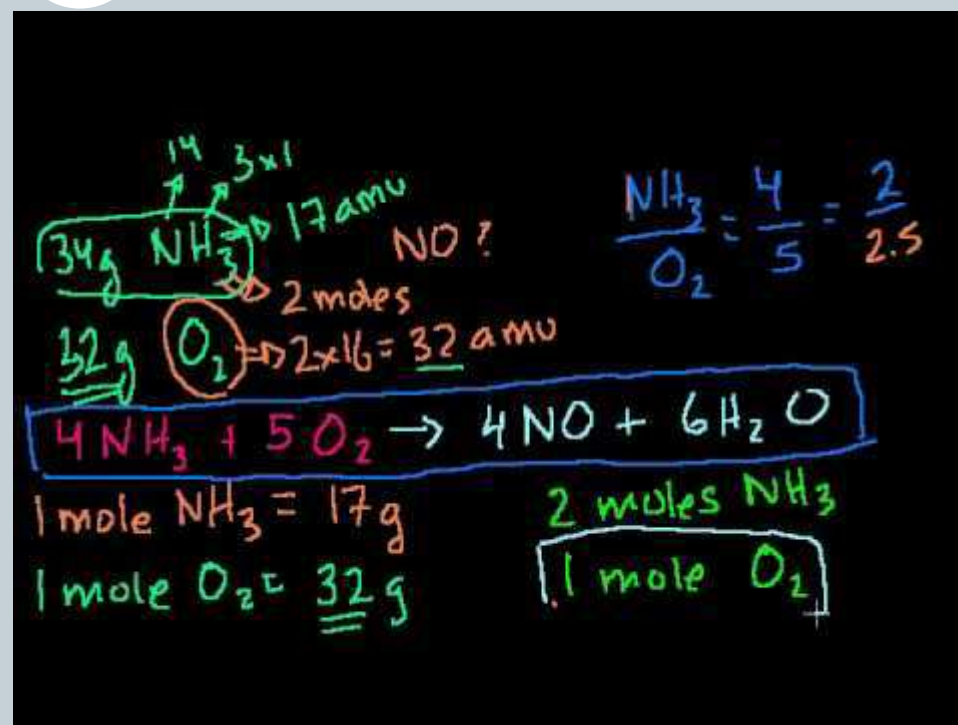 14 3x1
34g NH₃ ⇒ 17 amu
NO?
⇒ 2 moles
32g O₂ ⇒ 2x16 = 32 amu
NH₃/O₂ = 4/5 = 2/2.5
4NH₃ + 5O₂ → 4NO + 6H₂O
1 mole NH₃ = 17g
1 mole O₂ = 32g
2 moles NH₃
1 mole O₂